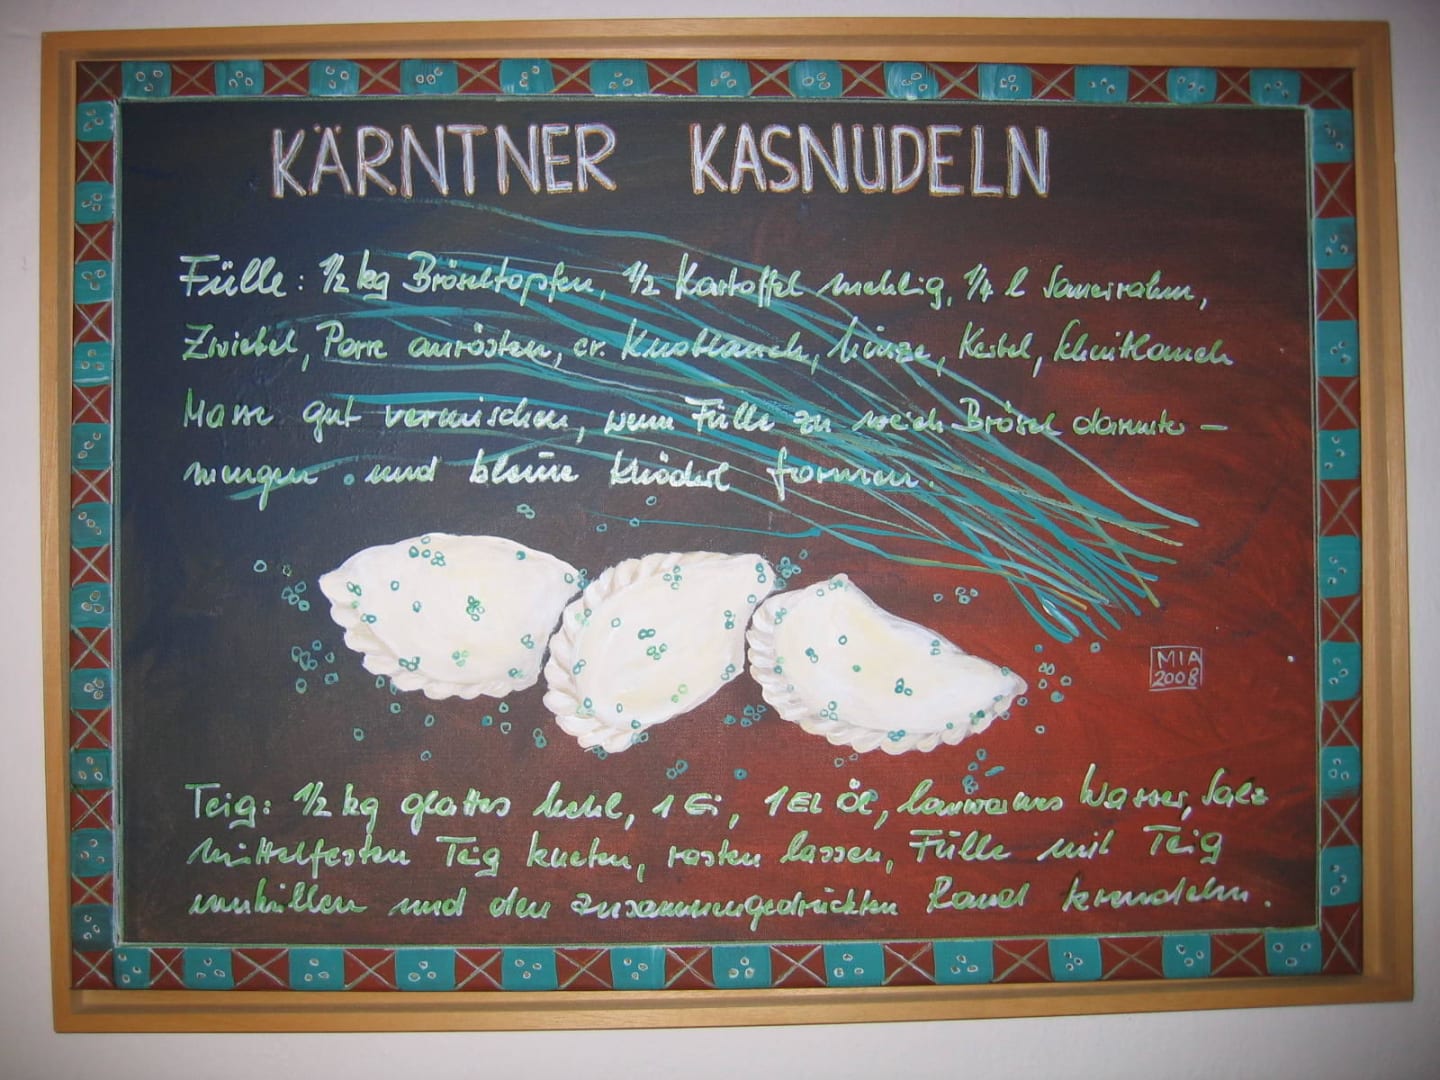 KÄRNTNER KASNUDELN
Fülle: ½ kg Bröseltopfen, ½ Kartoffel mehlig, ¼ l Sauerrahm,
Zwiebel, Porre anrösten, cr. Knoblauch, Minze, Kerbel, Schnittlauch
Masse gut vermischen, wenn Fülle zu weich Brösel darunter –
mengen und kleine Knöderl formen.
MIA
2008
Teig: ½ kg glattes Mehl, 1 Ei, 1 EL Öl, lauwarmes Wasser, Salz
Mittelfesten Teig kneten, rasten lassen, Fülle mit Teig
umhüllen und den zusammengedrückten Rand krendeln.